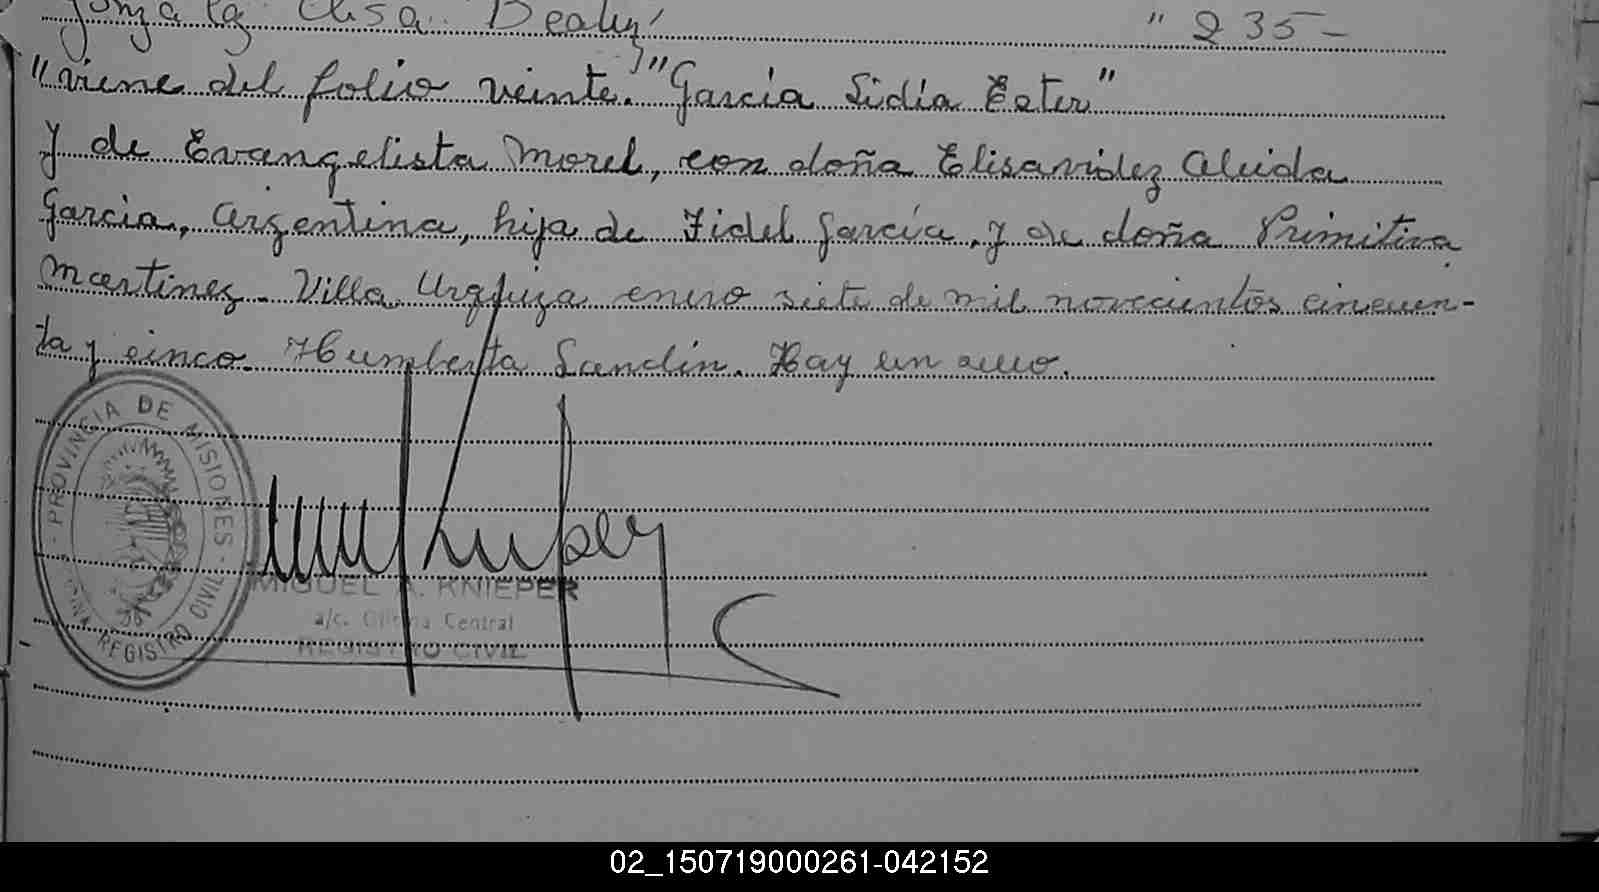 Gonzalez Elsa Beatriz " 235-
"viene del folio veinte." "Garcia Sidia Ester"
y de Evangelista Morel, con doña Elisavidez Aleida
Garcia, argentina, hija de Fidel García, y de doña Primitiva
Martinez. Villa Urquiza enero siete de mil novecientos cincuen-
ta y cinco. Humberto Sandin. Hay un sello.
PROVINCIA DE MISIONES
REGISTRO CIVIL
MIGUEL A. KNIEPER
a/c. Oficina Central
REGISTRO CIVIL
02_150719000261-042152